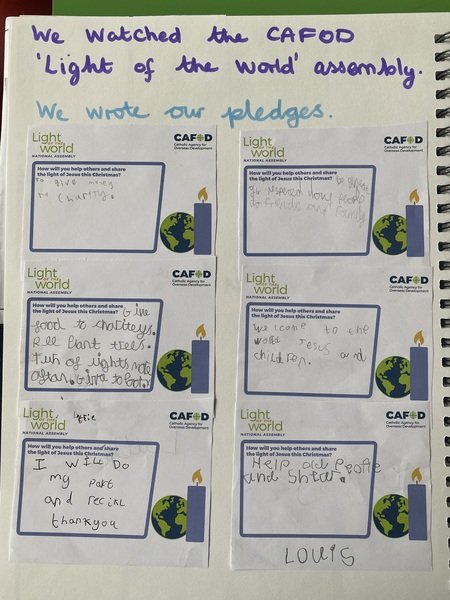 We watched the CAFOD
'Light of the world' assembly.
We wrote our pledges.
Light
OF THE
world
NATIONAL ASSEMBLY
CAFOD
Catholic Agency for
Overseas Development
How will you help others and share
the light of Jesus this Christmas?
To give money
to charity.
Light
OF THE
world
NATIONAL ASSEMBLY
CAFOD
Catholic Agency for
Overseas Development
How will you help others and share
the light of Jesus this Christmas?
people
to friends and family
Light
OF THE
world
NATIONAL ASSEMBLY
CAFOD
Catholic Agency for
Overseas Development
How will you help others and share
the light of Jesus this Christmas? Give
food to
plant trees.
of lights
Give to
Light
OF THE
world
NATIONAL ASSEMBLY
CAFOD
Catholic Agency for
Overseas Development
How will you help others and share
the light of Jesus this Christmas?
welcome to the
Jesus and
children.
Light
OF THE
world
NATIONAL ASSEMBLY
CAFOD
Catholic Agency for
Overseas Development
How will you help others and share
the light of Jesus this Christmas?
I will Do
my part
and
thankyou
Light
OF THE
world
NATIONAL ASSEMBLY
CAFOD
Catholic Agency for
Overseas Development
How will you help others and share
the light of Jesus this Christmas?
Help
and
LOUIS